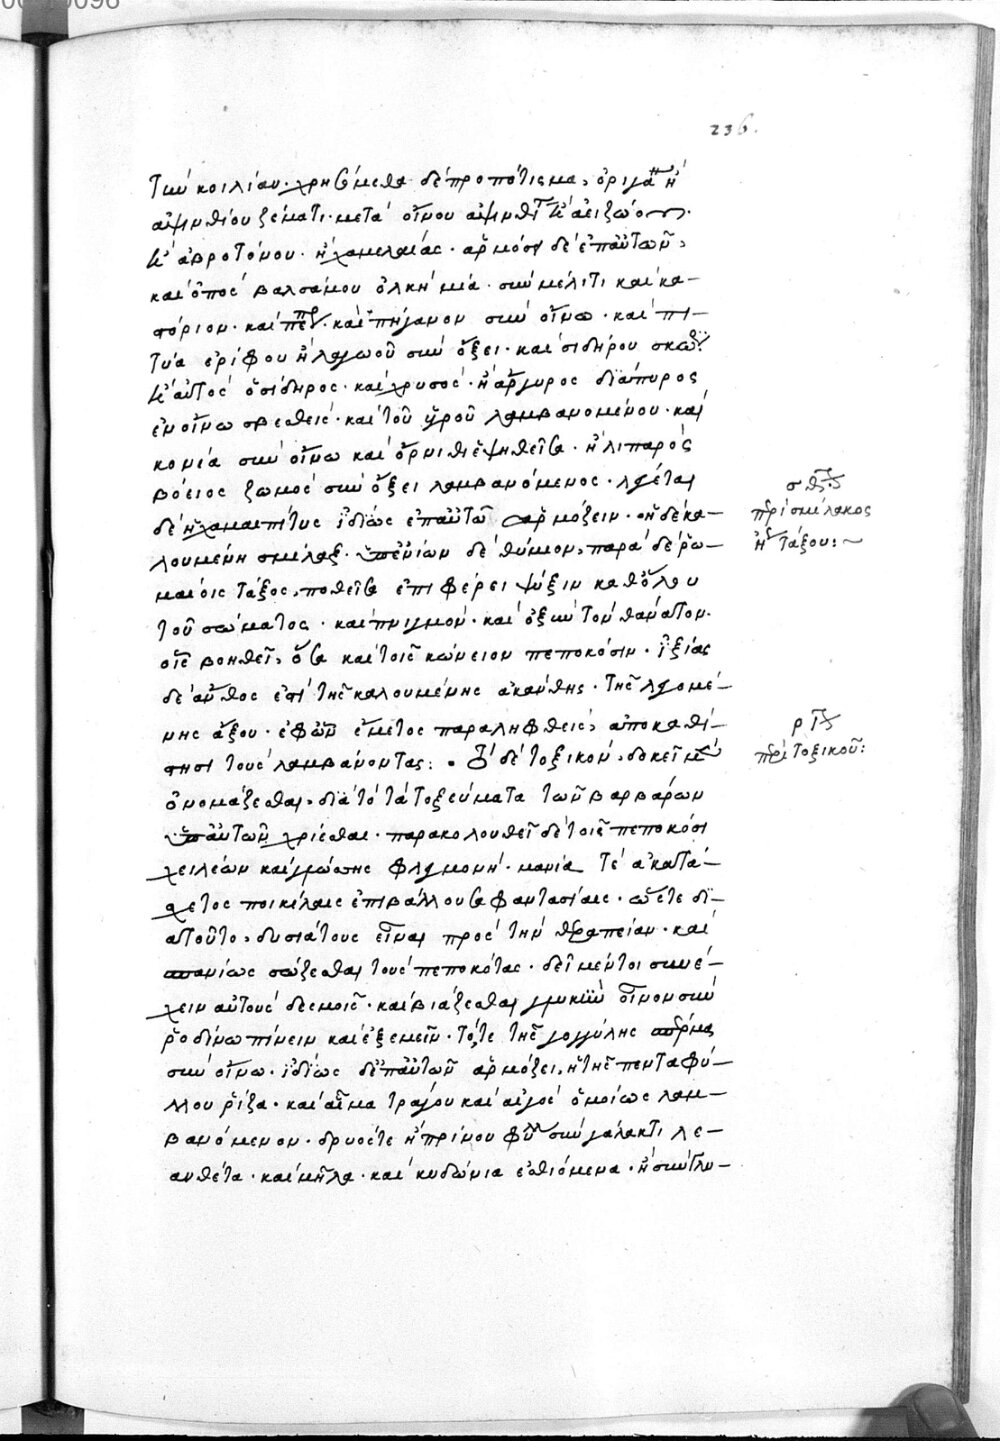 236.
τὴν κοιλίαν· χρησόμεθα δὲ προπότισμα, ὀριγάνῳ ἢ
ἀψινθίου ζέματι· μετὰ οἴνου ἀψινθίου καὶ ἀειζώου·
καὶ ἀβροτόνου· ἢ χαμελαίας· ἁρμόσει δὲ ἐπ' αὐτῶν,
καὶ ὀπὸς βαλσάμου ὁλκὴ μία· σὺν μέλιτι καὶ κα-
στόριον· καὶ πέπερι· καὶ πήγανον σὺν οἴνω· καὶ πι-
τύα ἐρίφου ἢ λαγωοῦ σὺν ὄξει· καὶ σιδήρου σκωρία
καὶ αὐτὸς ὁ σίδηρος· καὶ χρυσός· ἢ ἄργυρος διάπυρος
ἐν οἴνω σβεσθείς· καὶ τοῦ ὑγροῦ λαμβανομένου· καὶ
κονία σὺν οἴνω καὶ ὄρνιθι ἑψηθεῖσα· ἢ λιπαρὸς
βόειος ζωμὸς σὺν ὄξει λαμβανόμενος· λέγεται
δὲ ἡ χαμαιπίτυς ἰδίως ἐπ' αὐτῶν ἁρμόζειν· ἡ δὲ κα-
λουμένη σμίλαξ· ὑπ' ἐνίων δὲ θύμιον, παρὰ δὲ ῥω-
μαίοις τάξος, ποθεῖσα ἐπιφέρει ψύξιν καθ' ὅλου
τοῦ σώματος· καὶ πνιγμόν· καὶ ὀξὺν τὸν θάνατον·
οἷς βοηθεῖ, ὅσα καὶ τοῖς κώνειον πεπωκόσιν· ἰξίας
δὲ ἄνθος ἐπὶ τῆς καλουμένης ἀκάνθης· τῆς λεγομέ-
νης ἄξου· ἐφ' ὧν ἔμετος παραληφθείς, ἀποκαθί-
στησι τοὺς λαμβάνοντας: · Τὸ δὲ τοξικόν, δοκεῖ μὲν
ὀνομάζεσθαι, διὰ τὸ τὰ τοξεύματα τῶν βαρβάρων
ὑπ' αὐτῶν χρίεσθαι· παρακολουθεῖ δὲ τοῖς πεποκόσι
χειλέων καὶ γλώσσης φλεγμονή· μανία τὲ ἀκατά-
σχετος ποικίλαις ἐπιβάλλουσα φαντασίαις· ὥστε δι-
ὰ τοῦτο, δυσιάτους εἶναι πρὸς τὴν θεραπείαν· καὶ
σπανίως σώζεσθαι τοὺς πεποκότας· δεῖ μέντοι συνέ-
χειν αὐτοὺς δεσμοῖς· καὶ βιάζεσθαι γλυκὺν οἶνον σὺν
ῥοδίνω πίνειν καὶ ἐξεμεῖν· τότε τῆς γογγύλης σπέρμα
σὺν οἴνω· ἰδίως δὲ ἐπ' αὐτῶν ἁρμόζει, ἡ τῆς πενταφύ-
λλου ῥίζα· καὶ αἷμα τράγου καὶ αἰγὸς ὁμοίως λαμ-
βανόμενον· δρυός τε ἢ πρίνου φύλλα σὺν γάλακτι λε-
ανθέντα· καὶ μῆλα· καὶ κυδώνια ἐσθιόμενα· ἢ σὺν γλη-
περὶ σμίλακος
ἢ τάξου:~
περὶ τοξικοῦ: